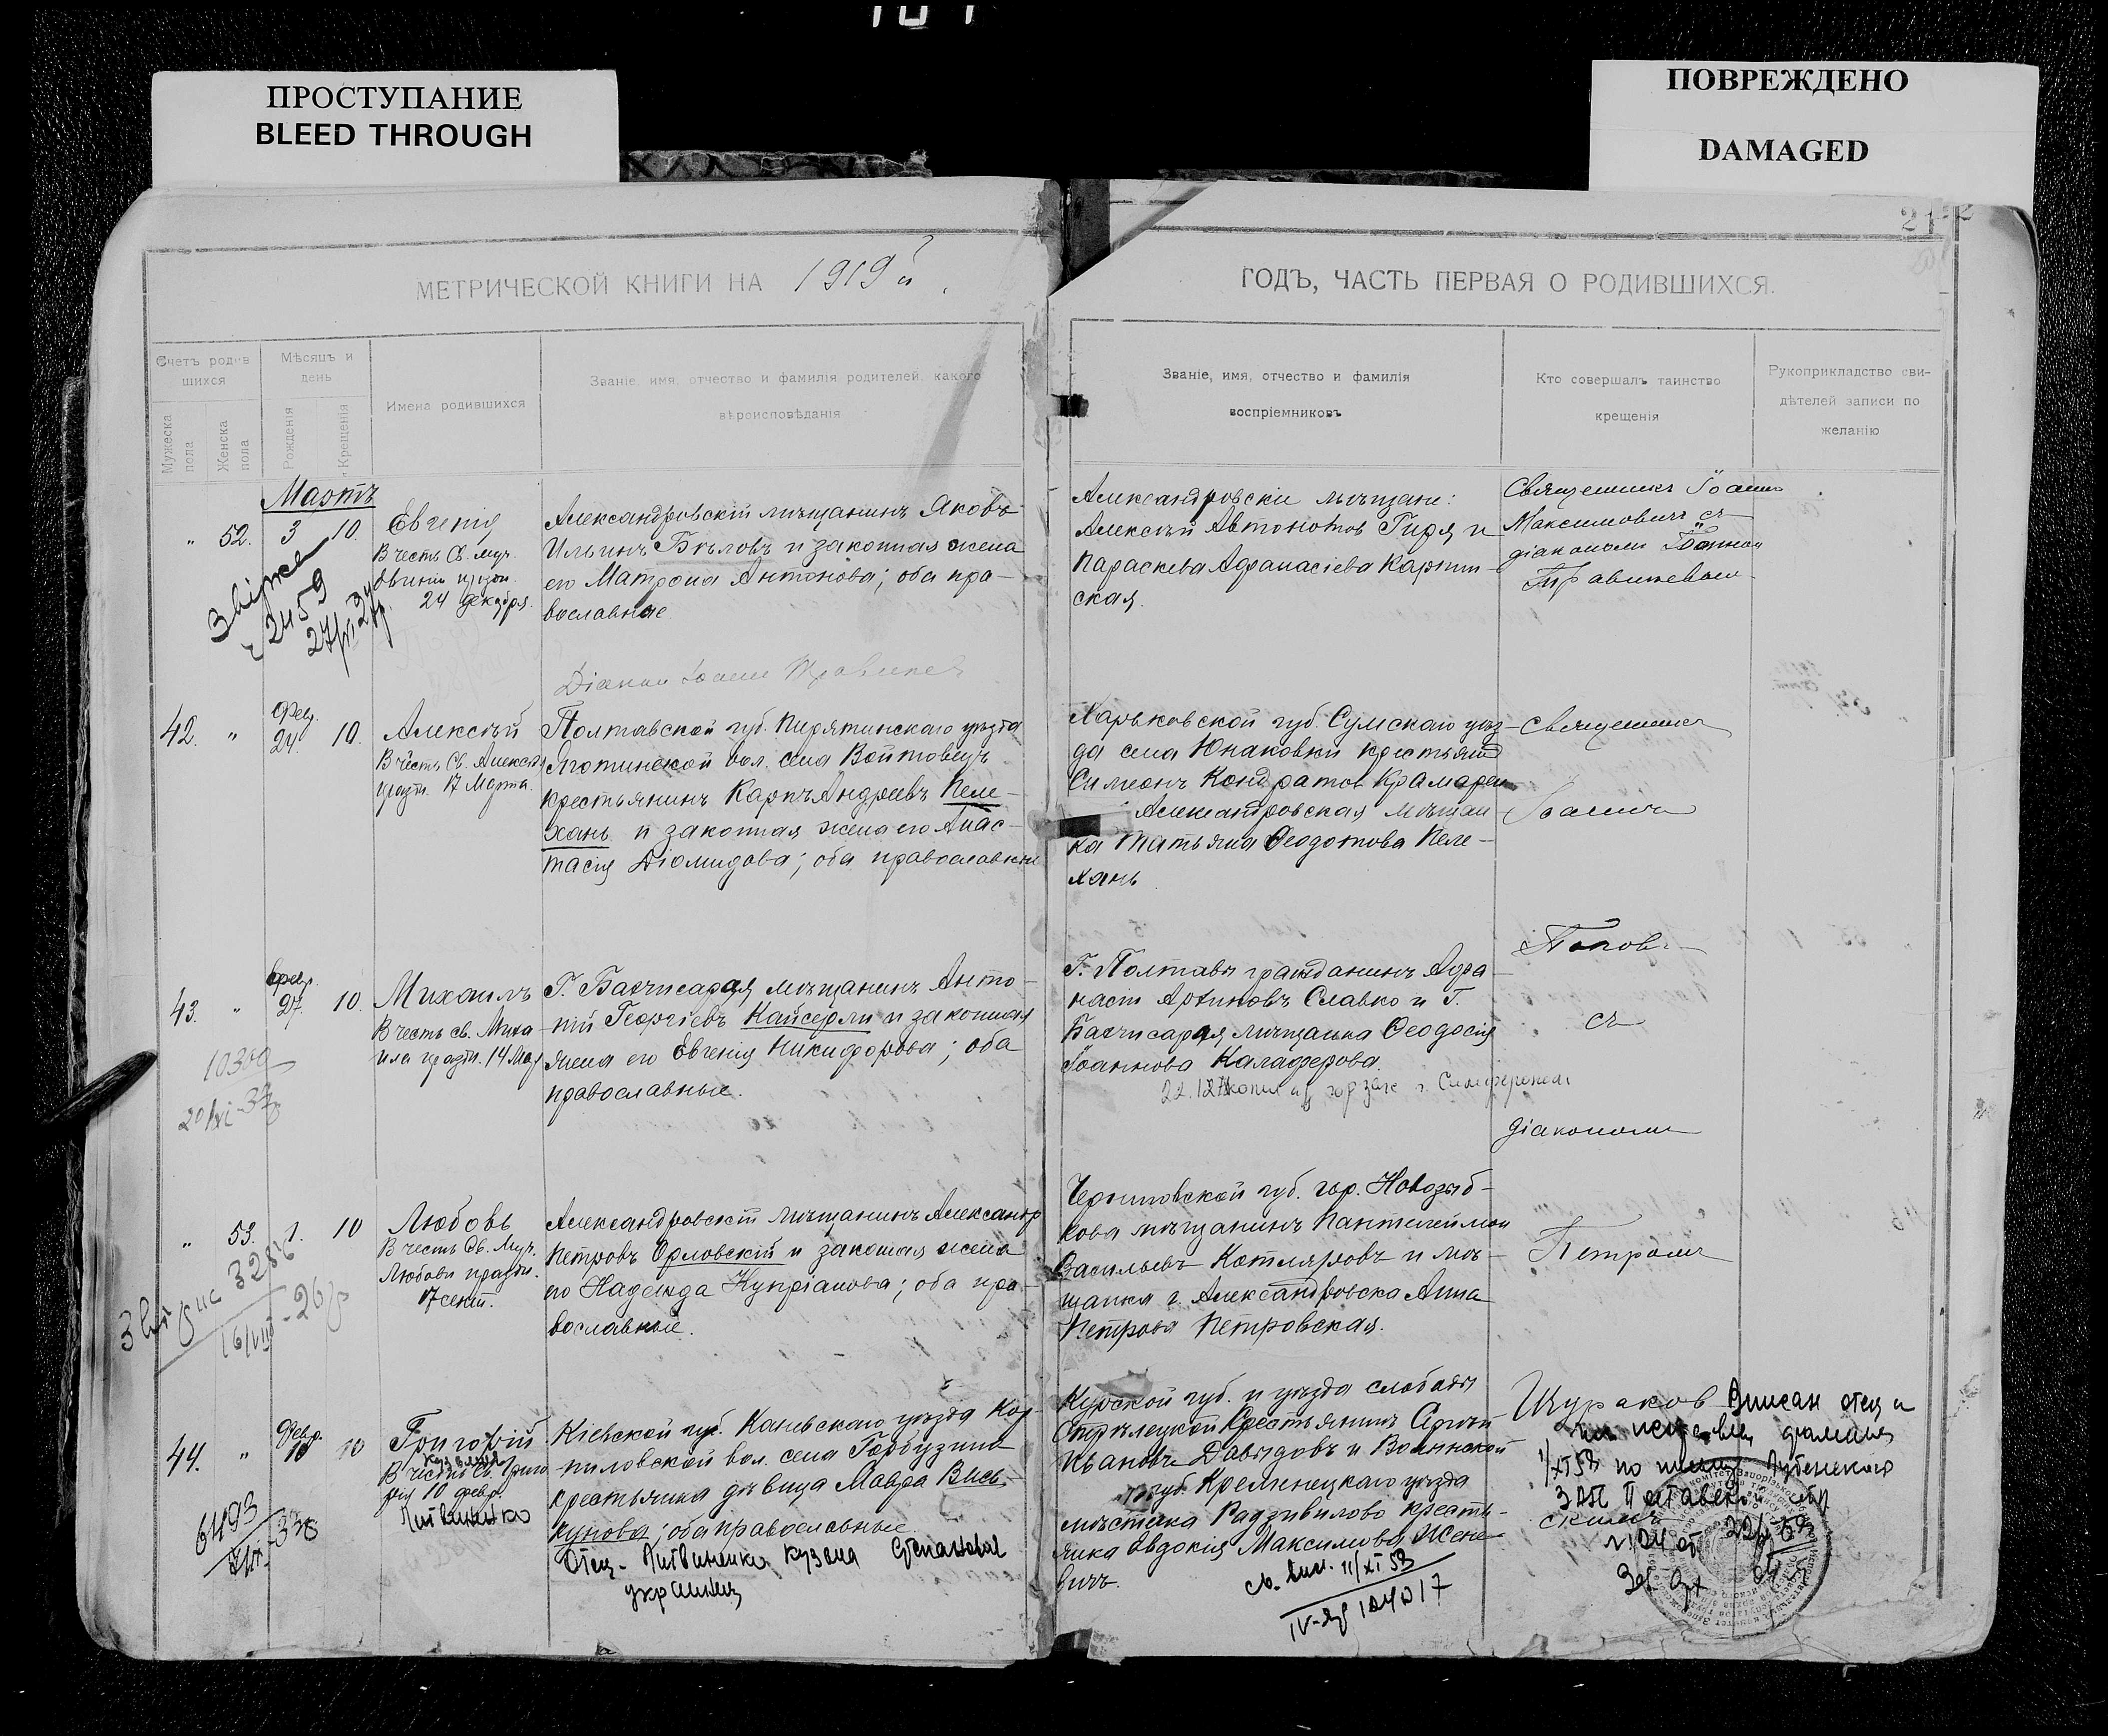 ПРОСТУПАНИЕ
BLEED THROUGH
ПОВРЕЖДЕНО
DAMAGED
МЕТРИЧЕСКОЙ КНИГИ НА 1919й
ГОДЪ, ЧАСТЬ ПЕРВАЯ О РОДИВШИХСЯ.
Счетъ родив
шихся
Мужеска пола
Женска пола
Мѣсяцъ и
день
Рожденія
Крещенія
Имена родившихся
Званіе, имя, отчество и фамилія родителей, какого
вѣроисповѣданія
Званіе, имя, отчество и фамилія
воспріемниковъ
Кто совершалъ таинство
крещенія
Рукоприкладство сви-
дѣтелей записи по
желанію
Мартъ
" 52. 3 10.
Евгенія
В честь Св. муч.
Евгеніи празд.
24 декабря.
Александровскій мѣщанинъ Яковъ
Ильинъ Бѣловъ и законная жена
его Матрона Антонова; оба пра-
вославные
Александровскіе мѣщане:
Алексѣй Автономов Гиря и
Параскева Афанасіева
ская.
Священникъ Іоаннъ
Максимовичъ съ
діакономъ Іоанном
2459
Діакон Іоанн
42. " Февр. 24. 10.
Алексѣй
В честь Св. Алексѣя
праздн. 17 Марта.
Полтавской губ. Пирятинскаго уѣзда
Яготинской вол. села Войтовецъ
крестьянинъ Карпъ Андреевъ Пеле-
хань и законная жена его Анас-
тасія Діомидова; оба православные
Харьковской губ. Сумскаго уѣз-
да села Юнаковки крестьянинъ
Симеонъ Кондратов
Александровская мѣщан-
ка Татьяна Ѳеодотова Пеле-
хань
Священникъ
Іоаннъ
Попов
съ
діакономъ
Петромъ
Шураков
43. " Февр. 27. 10.
Михаилъ
В честь св. Миха
ила праздн. 14 Мая
20/XI-37
Г. Бахчисарая мѣщанинъ Анто-
ній Георгіевъ Кайсерли и законная
жена его Евгенія Никифорова; оба
православные.
Г. Полтавы гражданинъ Афа-
насій Архиповъ Славко и Г.
Бахчисарая мѣщанка Ѳеодосія
Іоаннова Калаферова.
г. Симферополь
" 53. 1. 10
Любовь
В честь Св. Муч.
Любови праздн.
17 сент.
3286
Александровскій мѣщанинъ Александръ
Петровъ Орловскій и законная жена
его Надежда Купріанова; оба пра-
вославные.
Черниговской губ. гор. Новозыб-
кова мѣщанинъ Пантелеймон
Васильевъ Котляровъ и мѣ-
щанка г. Александровска Анна
Петрова Петровская.
44. " Февр. 10 10
Григорій
Кузьмич
В честь Св. Григо
рія 10 февр.
Литвиненко
6493
Кіевской губ. Каневскаго уѣзда Кор-
ниловской вол. села Горбузина
крестьянка дѣвица Мавра Вись-
кунова; оба православные
Отец - Литвиненко Кузьма Степанович
украинец
Курской губ. и уѣзда слободы
Стрѣлецкой Крестьянинъ Сергѣй
Ивановъ Давыдовъ и Волынской
губ. Кременецкаго уѣзда
мѣстечка Радзивилово кресть-
янка Евдокія Максимова Жене-
вичъ.
св. выд. 11/XI 53
Вписан отец и
исправлен фамилия